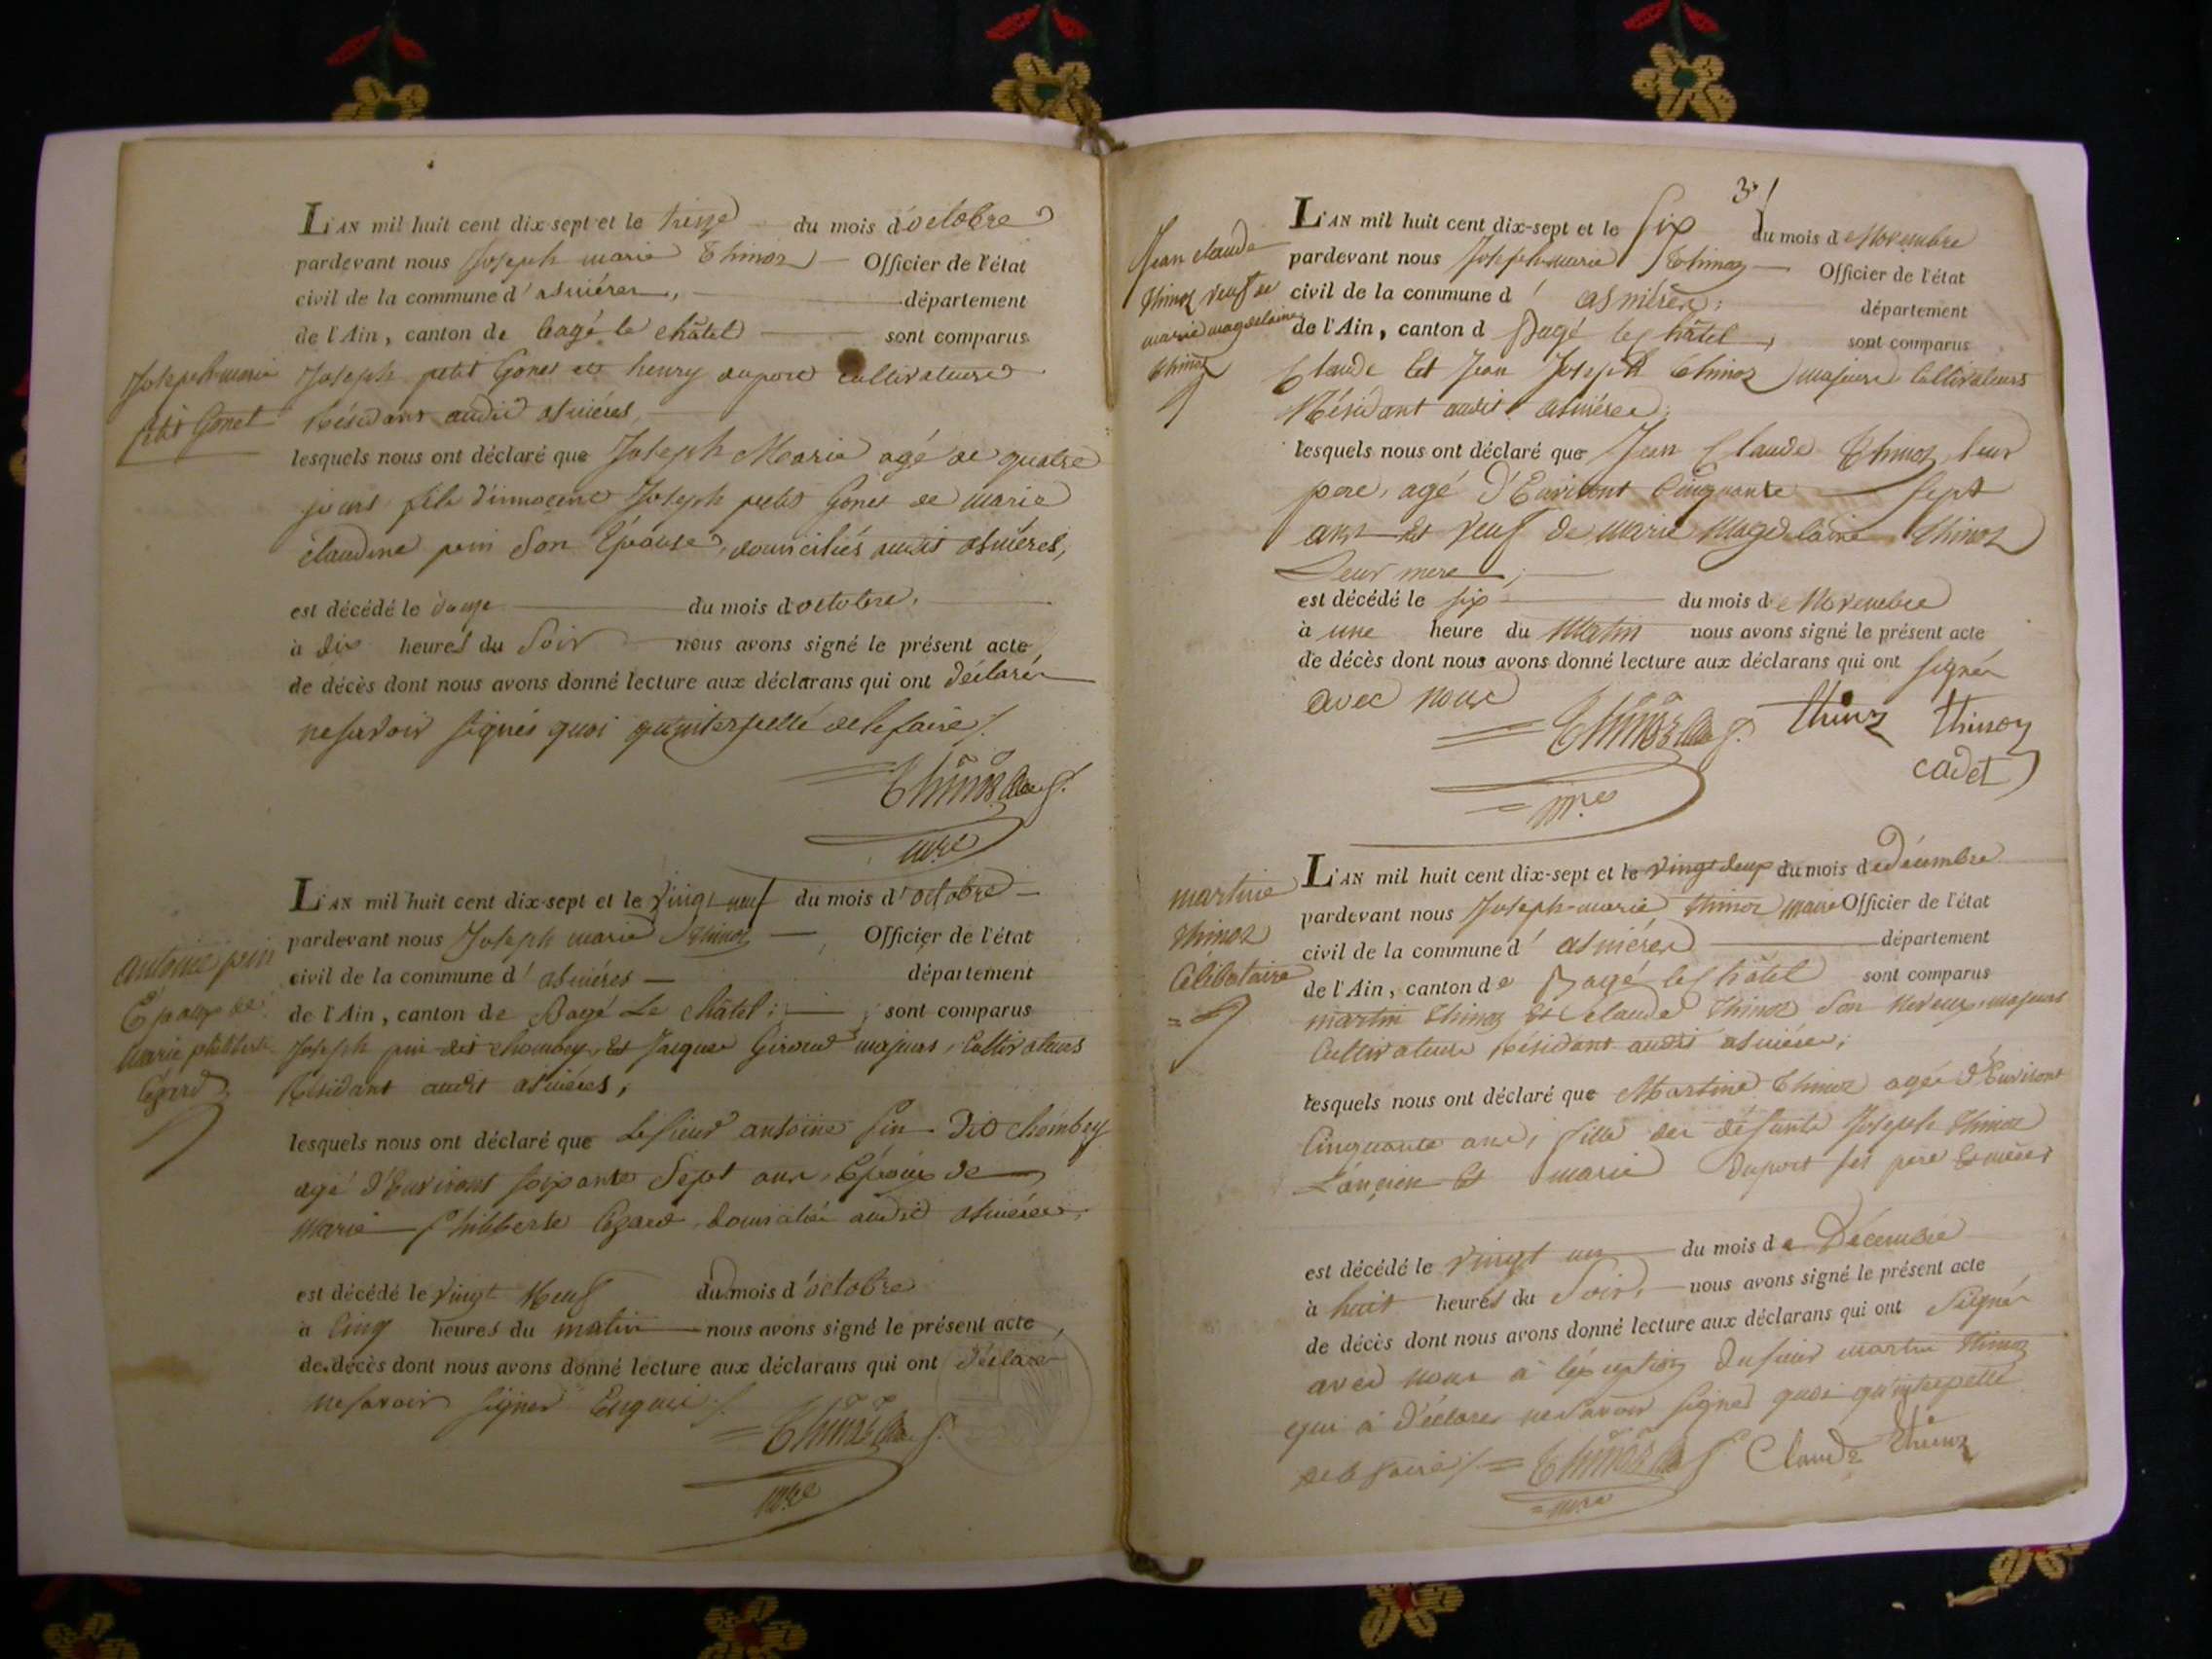 L'AN mil huit cent dix-sept et le treize du mois d'octobre
pardevant nous Joseph marie Thinoz Officier de l'état
civil de la commune d'asniéres, département
de l'Ain, canton de Bagé le châtel sont comparus
Joseph marie
petit Gonet
Joseph petit Gonet et henry duport Cultivateurs
Résidant audit asniéres,
lesquels nous ont déclaré que Joseph Marie agé de quatre
jours fils d'innocent Joseph petit Gonet de marie
claudine pin Son Épouse, domiciliés audit asniéres,
est décédé le douze du mois d'octobre,
à dix heures du Soir nous avons signé le présent acte
de décès dont nous avons donné lecture aux déclarans qui ont déclarés
ne savoir signés quoi qu'interpellé de le faire /.
Thinoz
mre
L'AN mil huit cent dix-sept et le vingt neuf du mois d'octobre
pardevant nous Joseph marie Thinoz Officier de l'état
civil de la commune d'asniéres département
de l'Ain, canton de Bagé Le châtel; sont comparus
antoine pin
Époux de
marie philiberte
Cézard
Joseph pin dit chombey, Et Jacques Giroud majeurs, Cultivateurs
Résidant audit asniéres,
lesquels nous ont déclaré que Le sieur antoine pin Dit chombey
agé d'Environt soixante Sept ans, Époux de
marie philiberte Cezard, domicilié audit asniéres,
est décédé le vingt Neuf du mois d'octobre
à Cinq heures du matin nous avons signé le présent acte,
de décès dont nous avons donné lecture aux déclarans qui ont déclaré
ne savoir signer Enquis /.
Thinoz
mre
31
L'AN mil huit cent dix-sept et le Six du mois de Novembre
pardevant nous Joseph-marie Thinoz Officier de l'état
civil de la commune d' asniéres; département
de l'Ain, canton d Bagé le châtel, sont comparus
Jean claude
thinoz veuf de
marie magdelaine
thinoz
Claude Et Jean Joseph thinoz majeurs Cultivateurs
Résidant audit asniéres;
lesquels nous ont déclaré que Jean Claude Thinoz leur
pere, agé d'Environt Cinquante Sept
ans Et veuf de marie Magdelaine thinoz
Leur mere;
est décédé le six du mois de Novembre
à une heure du Matin nous avons signé le présent acte
de décès dont nous avons donné lecture aux déclarans qui ont signés
avec nous
Thinoz thinoz thinoz
cadet
mre
L'AN mil huit cent dix-sept et le vingt deux du mois de décembre
pardevant nous Joseph-marie thinoz maire Officier de l'état
civil de la commune d'asniéres département
de l'Ain, canton de Bagé le châtel sont comparus
martine
thinoz
Célibataire
martin thinoz Et claude thinoz Son Neveux, majeurs
Cultivateurs Résidant audit asniéres;
lesquels nous ont déclaré que Martine Thinoz agée d'Environt
Cinquante ans, fille des défunts Joseph thinoz
L'ançien Et marie Duport ses père Et mères
est décédé le vingt un du mois de Décembre
à huit heures du Soir, nous avons signé le présent acte
de décès dont nous avons donné lecture aux déclarans qui ont Signés
avec nous à l'éxception du sieur martin thinoz
qui à déclarer ne Savoir Signer quoi qu'interpellé
de le faire /. Thinoz Claude thinoz
mre